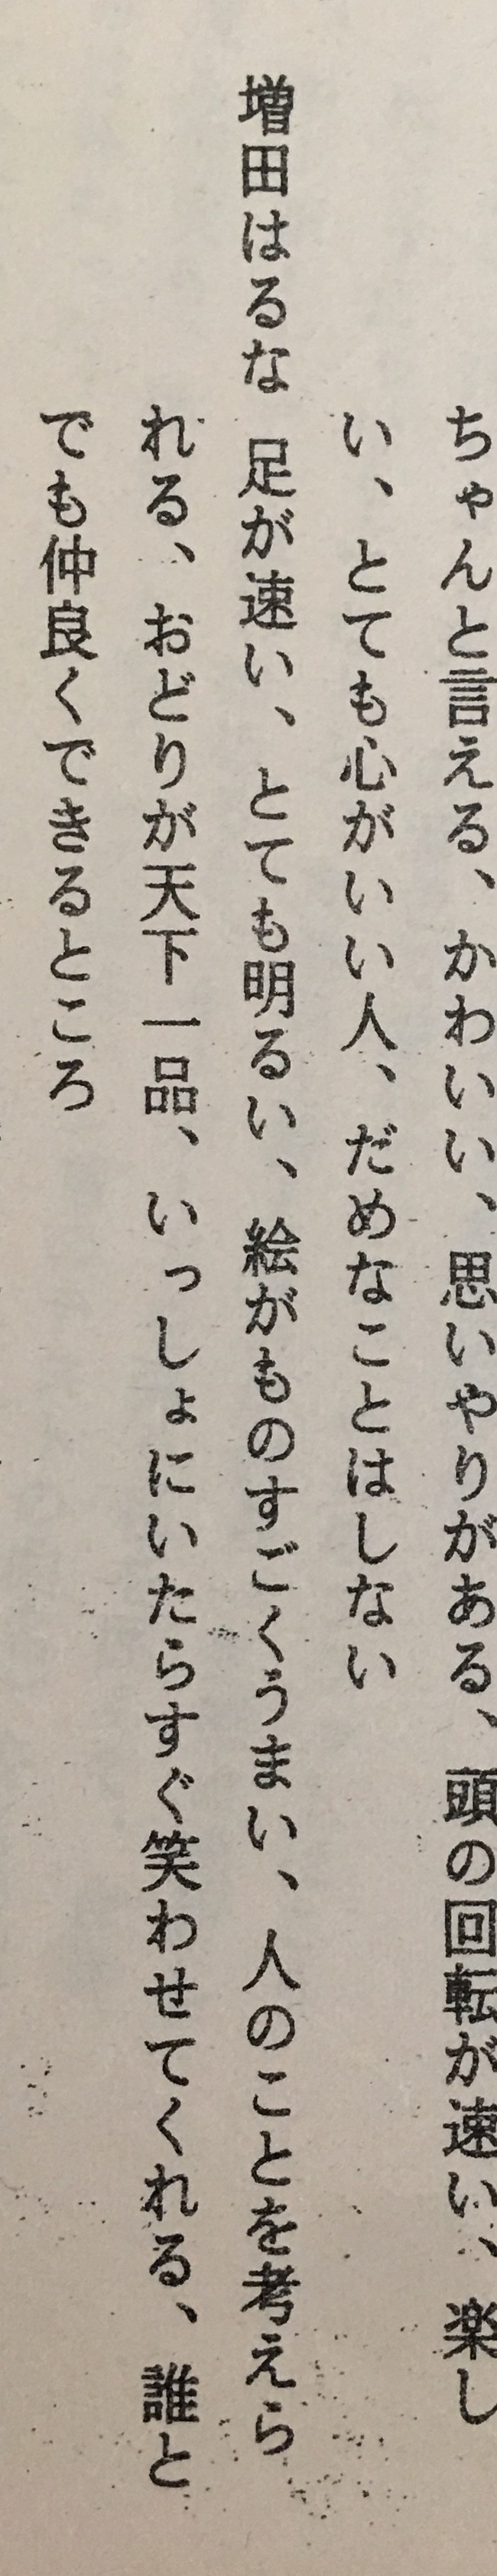 ちゃんと言える、かわいい、思いやりがある、頭の回転が速い、楽し
い、とても心がいい人、だめなことはしない
増田はるな 足が速い、とても明るい、絵がものすごくうまい、人のことを考えら
れる、おどりが天下一品、いっしょにいたらすぐ笑わせてくれる、誰と
でも仲良くできるところ